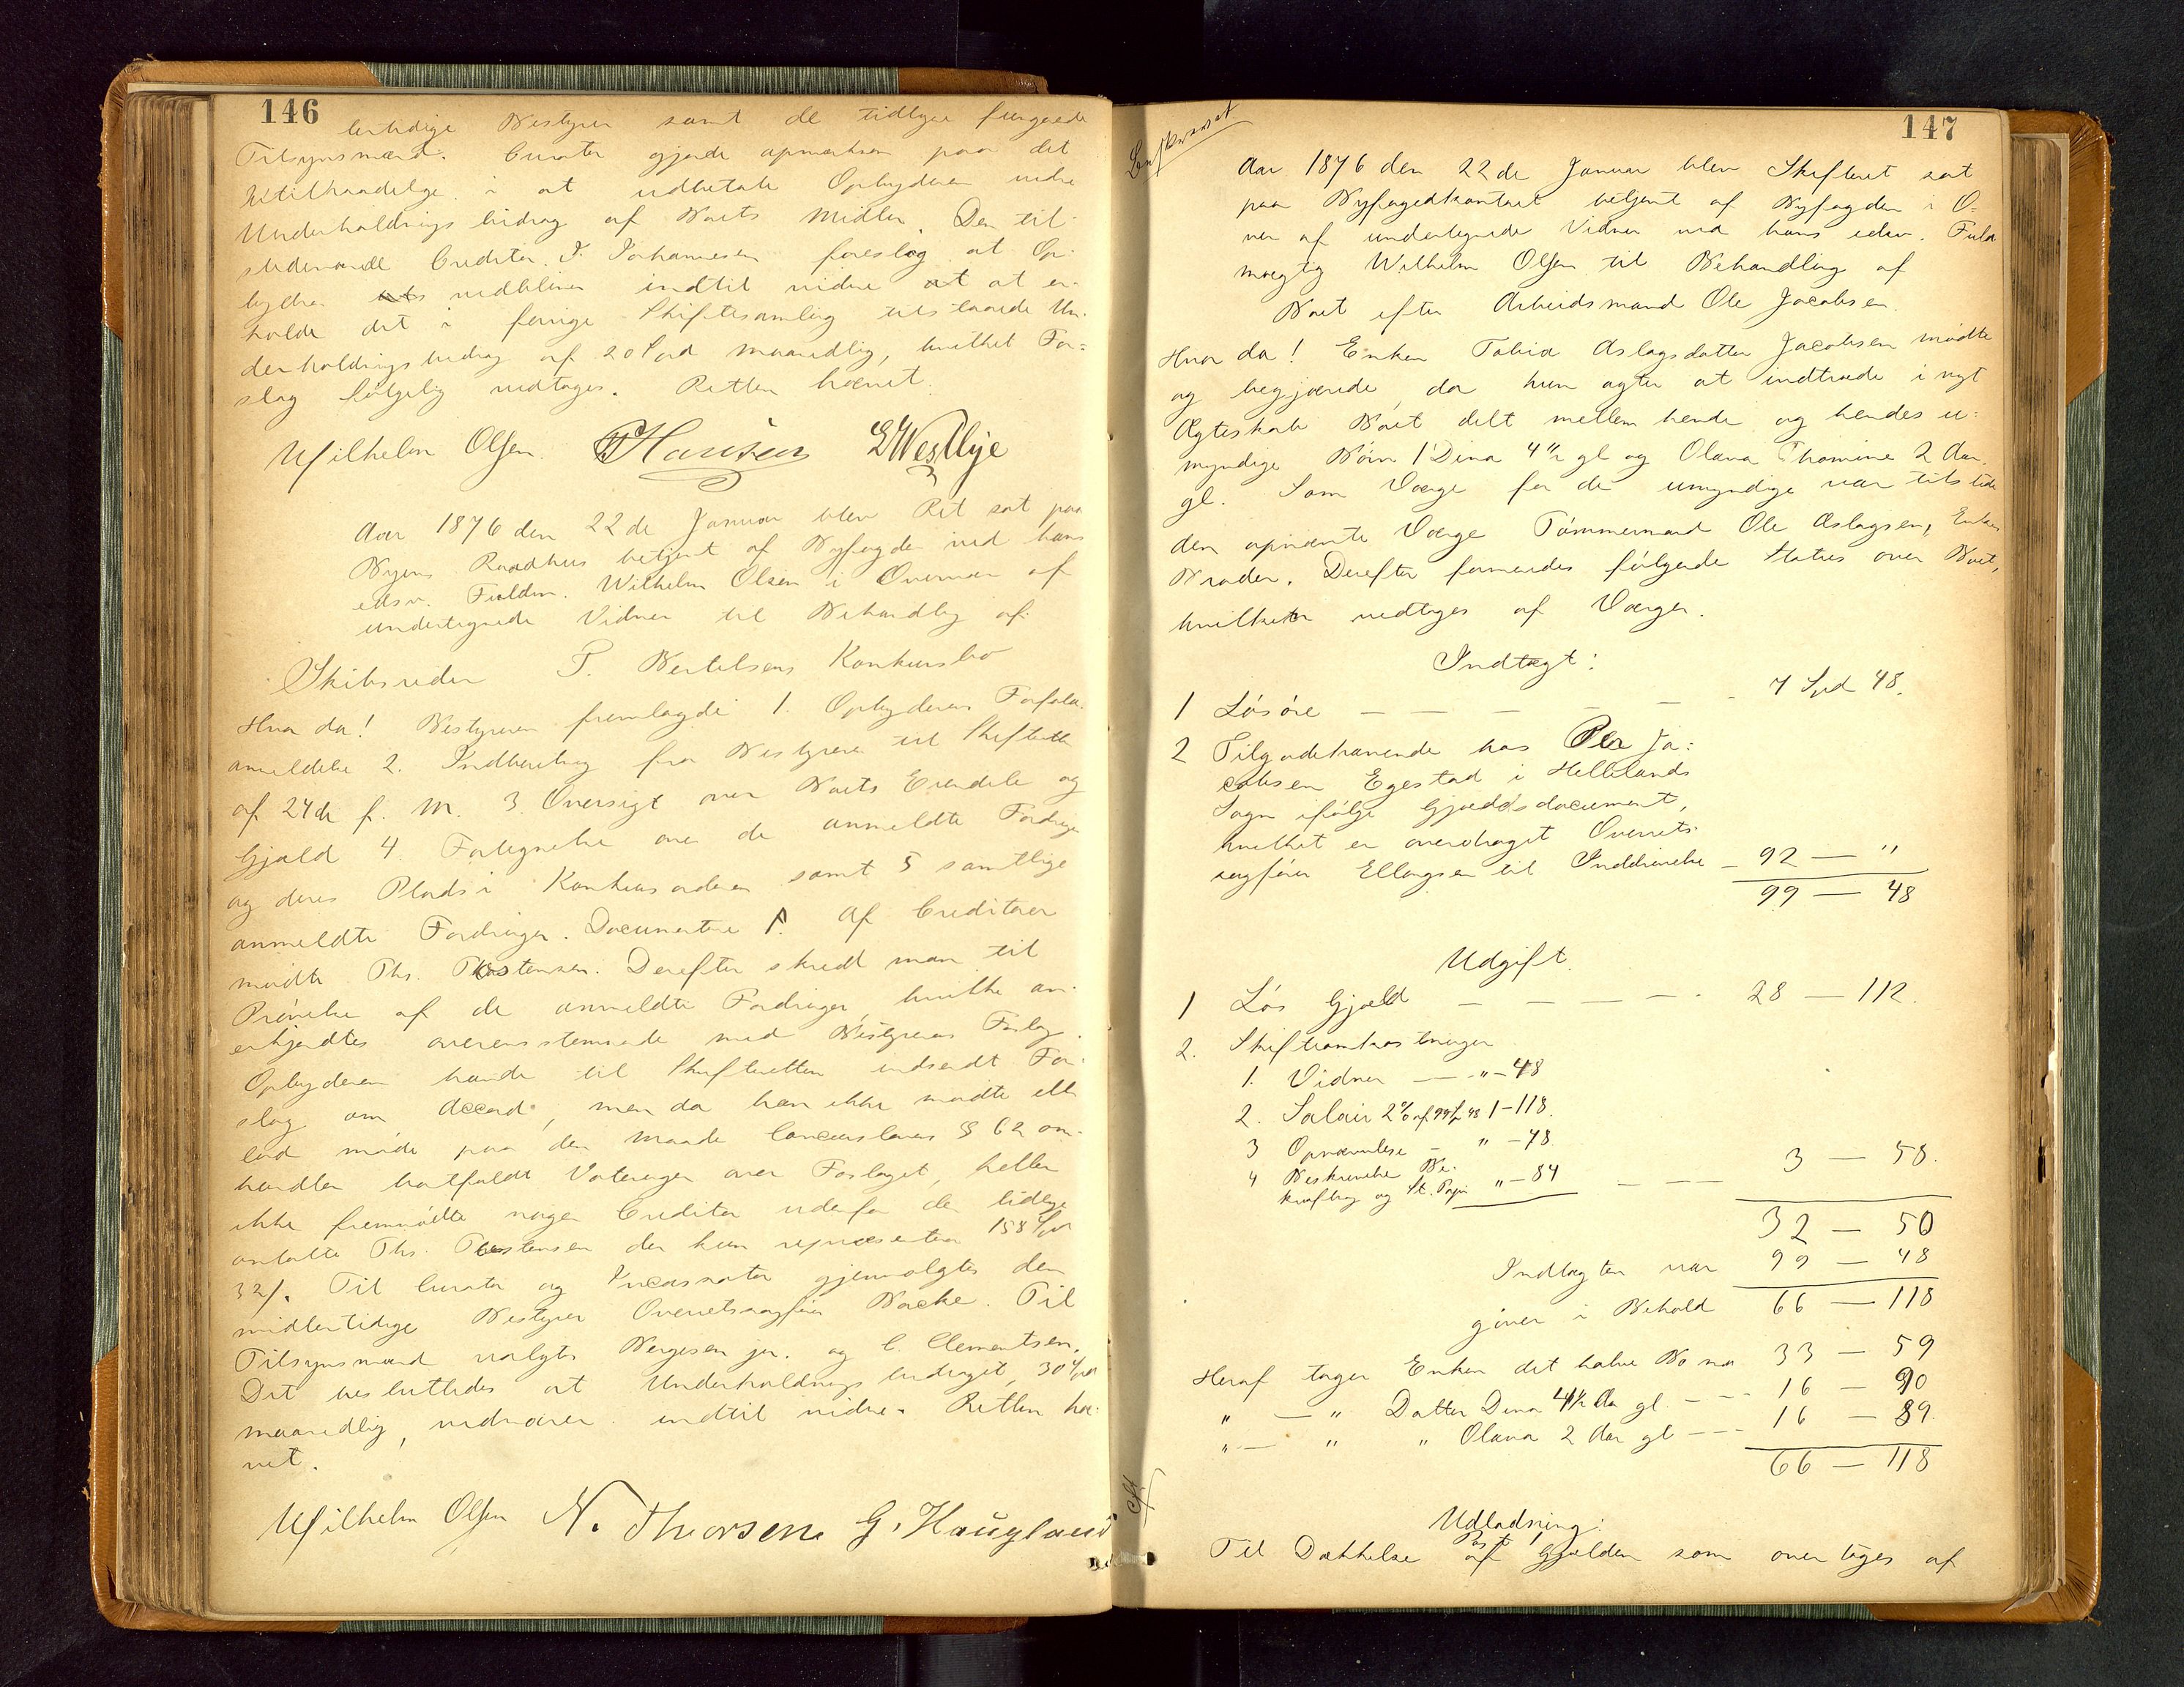 146
lertidige Bestyrer samt de tidligere fungerende
Tilsynsmænd. Curator gjorde opmærksom paa det
utilraadelige i at udbetale Opbyderen videre
Underholdningsbidrag af Boets Midler. Den til-
stedeværende Creditor J. Johannesen foreslog at Op-
byderen vedbliver indtil videre at er-
holde det i forrige Skiftesamling tilstaaede Un-
derholdningsbidrag af 20 Spd maanedlig, hvilket For-
slag følgelig vedtoges. Retten hævet.
Wilhelm Olsen. Hansen Westbye
Aar 1876 den 22de Januar blev Ret sat paa
Byens Raadhus betjent af Byfogden ved hans
edsv. Fuldm. Wilhelm Olsen i Overvær af
undertegnede Vidner til Behandling af
Skibsreder P. Bertelsens Konkursbo
Hvor da! Bestyreren fremlagde 1. Opbyderens Forfalds-
anmeldelse 2. Indberetning fra Bestyreren til Skifteretten
af 24de f. M. 3. Oversigt over Boets Eiendele og
Gjæld 4. Fortegnelse over de anmeldte Fordringer
og deres Plads i Konkursordenen samt 5 samtlige
anmeldte Fordringer. Documenterne Af Creditorer
mødte Ths. Thorstensen. Derefter skredt man til
Prøvelse af de anmeldte Fordringer, hvilke an-
erkjendtes overensstemmende med Bestyrerens Forslag.
Opbyderen havde til Skifteretten indsendt For-
slag om Accord, men da han ikke mødte eller
lod møde paa den Maade Concurslovens § 62 om-
handler bortfaldt Voteringen over Forslaget, heller
ikke fremmødte nogen Creditor udenfor den tidligere
omtalte Ths. Thorstensen der kun repræsenterer 158 Spd
32 s. Til Curator og Incassator gjenvalgtes den
midlertidige Bestyrer Overretssagfører Backe. Til
Tilsynsmænd valgtes Bergesen jr. og C. Clementsen.
Det besluttedes at Underholdningsbidraget, 30 Spd
maanedlig, vedvarer indtil videre. Retten hæ-
vet.
Wilhelm Olsen N. Thorsen G. Haugland
147
Aar 1876 den 22de Januar blev Skifteret sat
paa Byfogedkontoret betjent af Byfogden i O-
ver af undertegnede Vidner ved hans edsv. Fuld-
mægtig Wilhelm Olsen til Behandling af
Boet efter Arbeidsmand Ole Jacobsen.
Hvor da! Enken Tabia Aslagsdatter Jacobsen mødte
og begjærede, da hun agter at indtræde i nyt
Ægteskab Boet delt mellem hende og hendes u-
myndige Børn 1 Dina 4½ gl og Olava Thomine 2 Aar
gl. Som Værge for de umyndige var tilstede
den opnævnte Værge Tømmermand Ole Aslagsen, Enkens
Broder. Derefter formeredes følgende Status over Boet,
hvilken vedtoges af Værgen.
Indtægt:
1 Løsøre — — — — — 7 Spd 48.
2 Tilgodehavende hos Peder Ja-
cobsen Egestad i Hellelands
Sogn ifølge Gjældsdocument,
hvilket er overdraget Overrets-
sagfører Ellingsen til Inddrivelse — 92 — "
99 — 48
Udgift.
1 Løs Gjæld — — — — 28 — 112.
2. Skifteomkostninger
1. Vidner — " — 48
2. Salair 2% af 99 Spd 48 1 — 118.
3 Opnævnelse — " — 48
4 Beskrivelse Be-
kræftning og St. Papir " — 84 — — — 3 — 58.
32 — 50
Indtægten var 99 — 48
giver i Behold 66 — 118
Heraf tager Enken det halve Bo med 33 — 59
" — " Datter Dina 4½ Aar gl. — — 16 — 90
" — " " Olava 2 Aar gl — — 16 — 89.
66 — 118
Udlodning:
Til Dækkelse af Post 1 Gjælden som overtages af